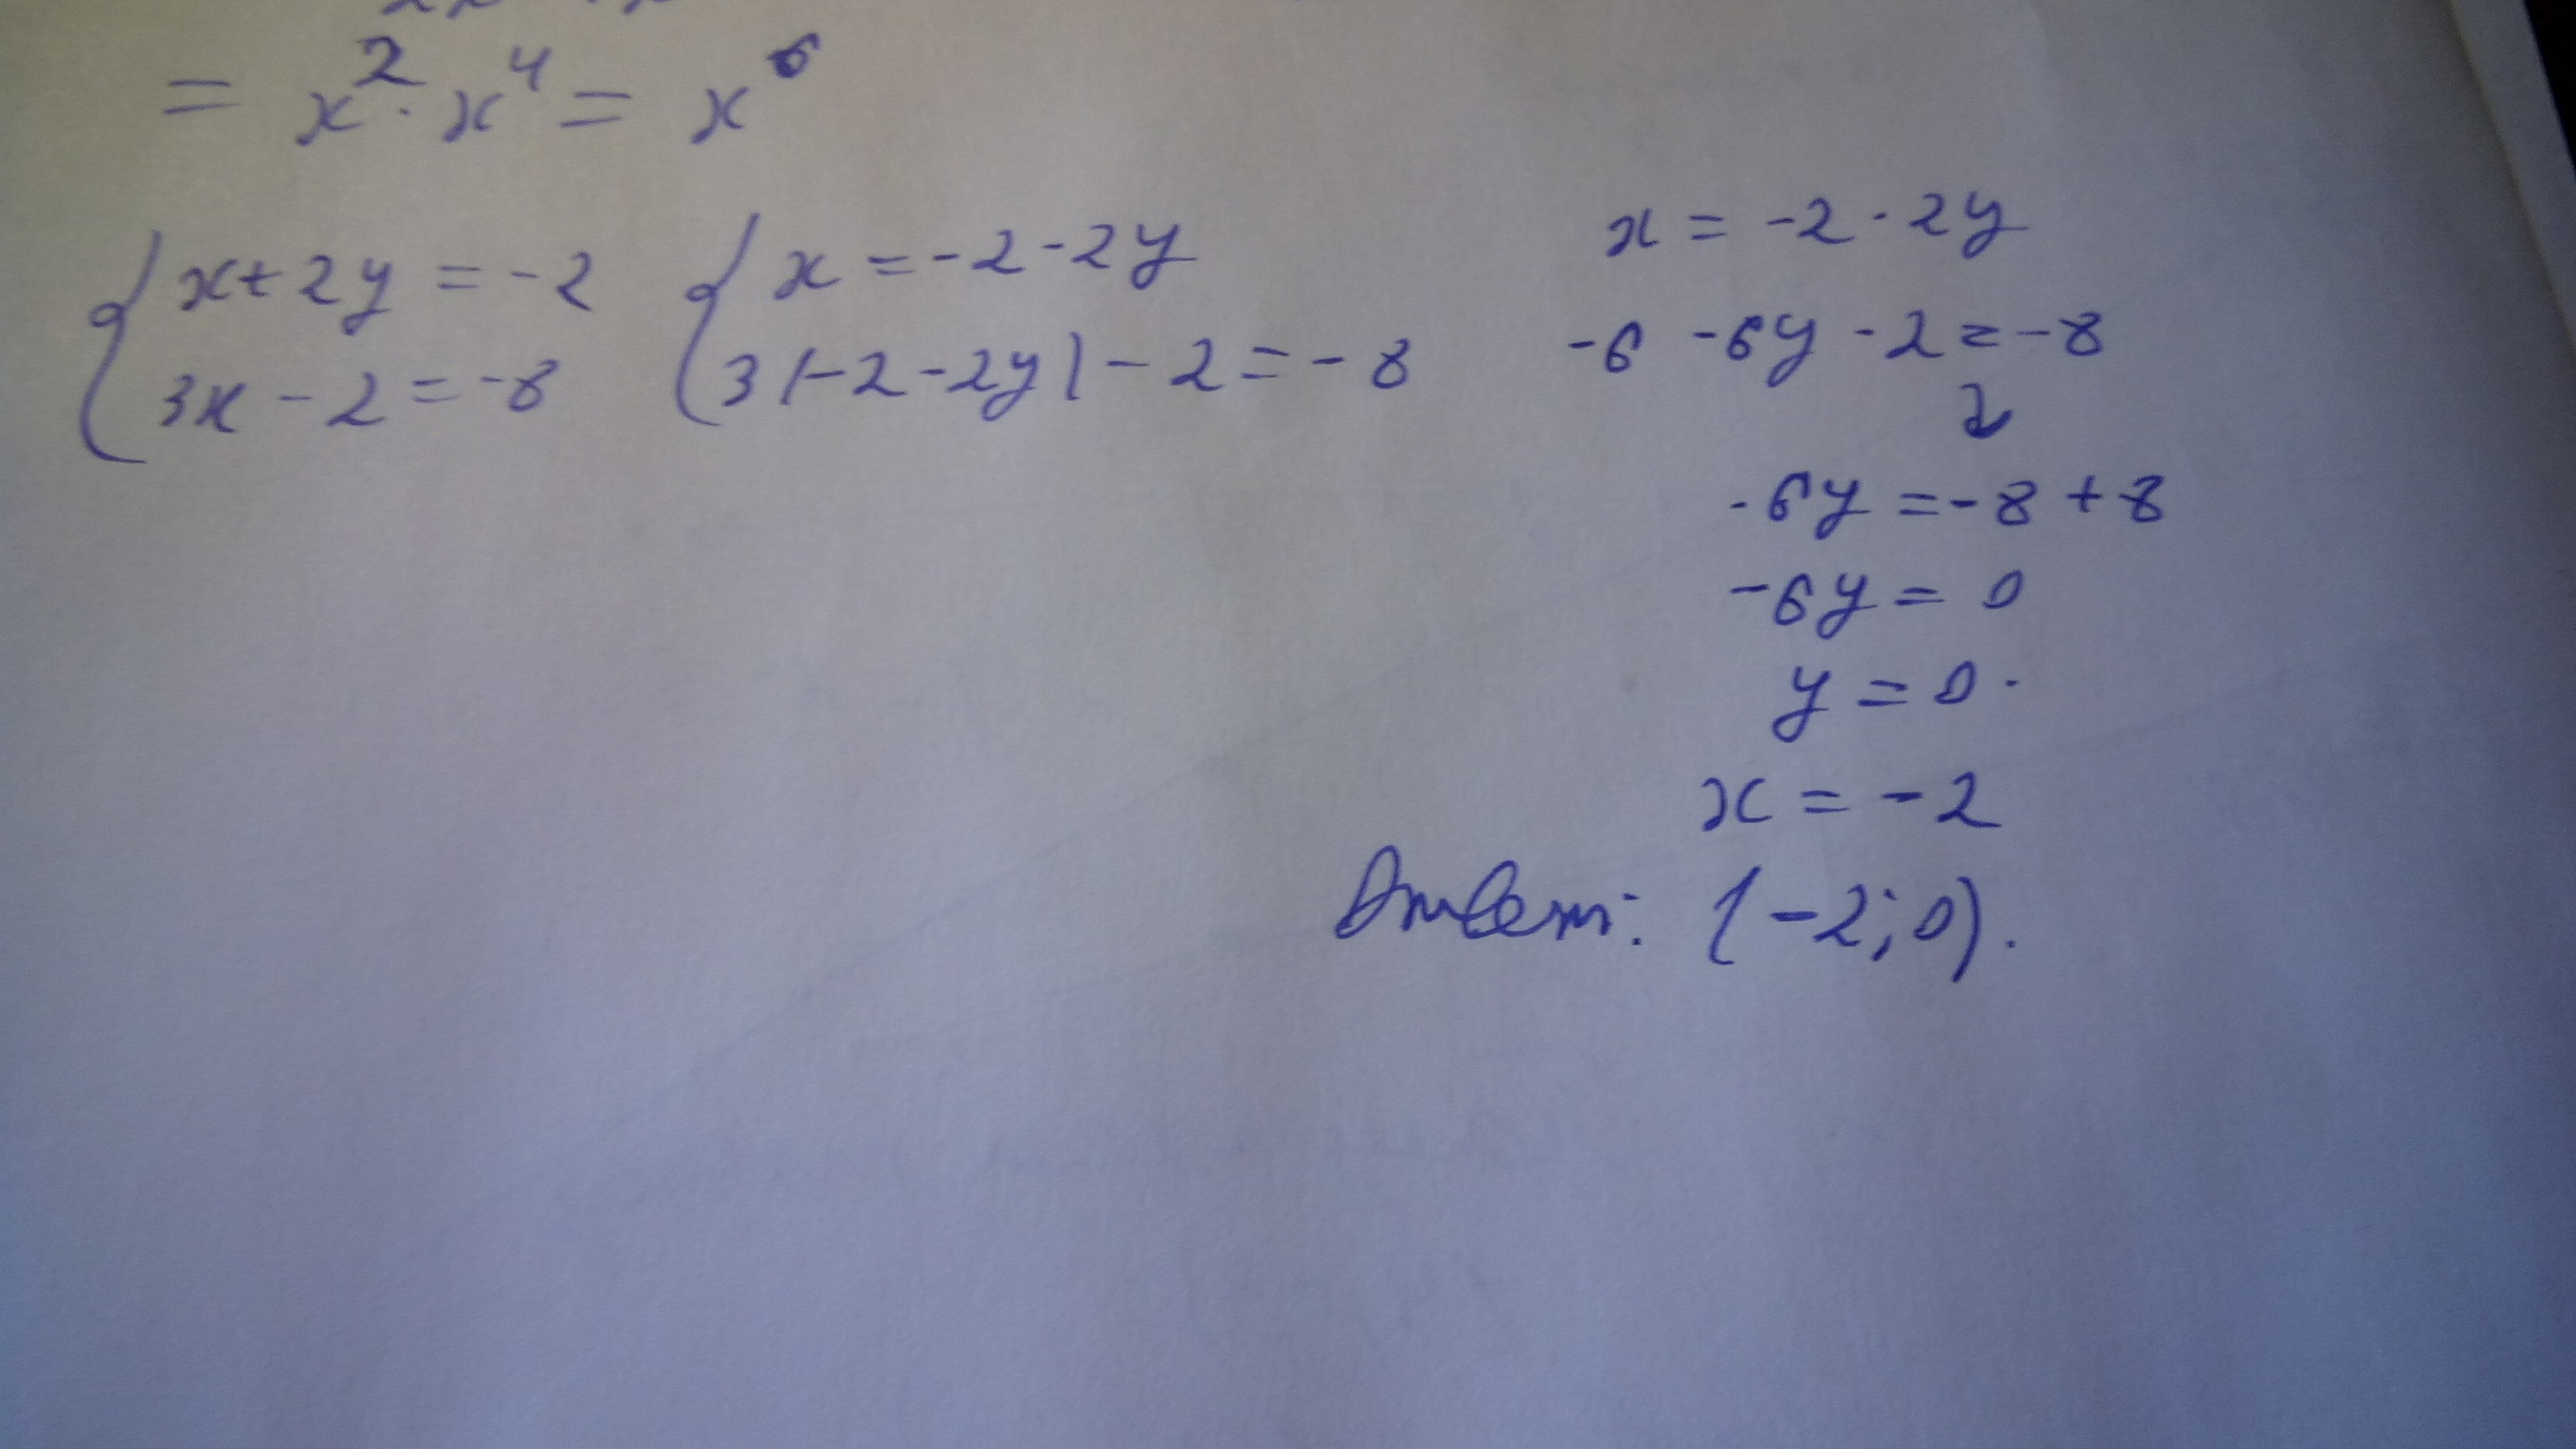 = x² · x⁴ = x⁶
{ x + 2y = -2
3x - 2 = -8
{ x = -2 - 2y
3(-2 - 2y) - 2 = -8
x = -2 - 2y
-6 -6y - 2 = -8
-6y = -8 + 8
-6y = 0
y = 0.
x = -2
Ответ: (-2; 0).